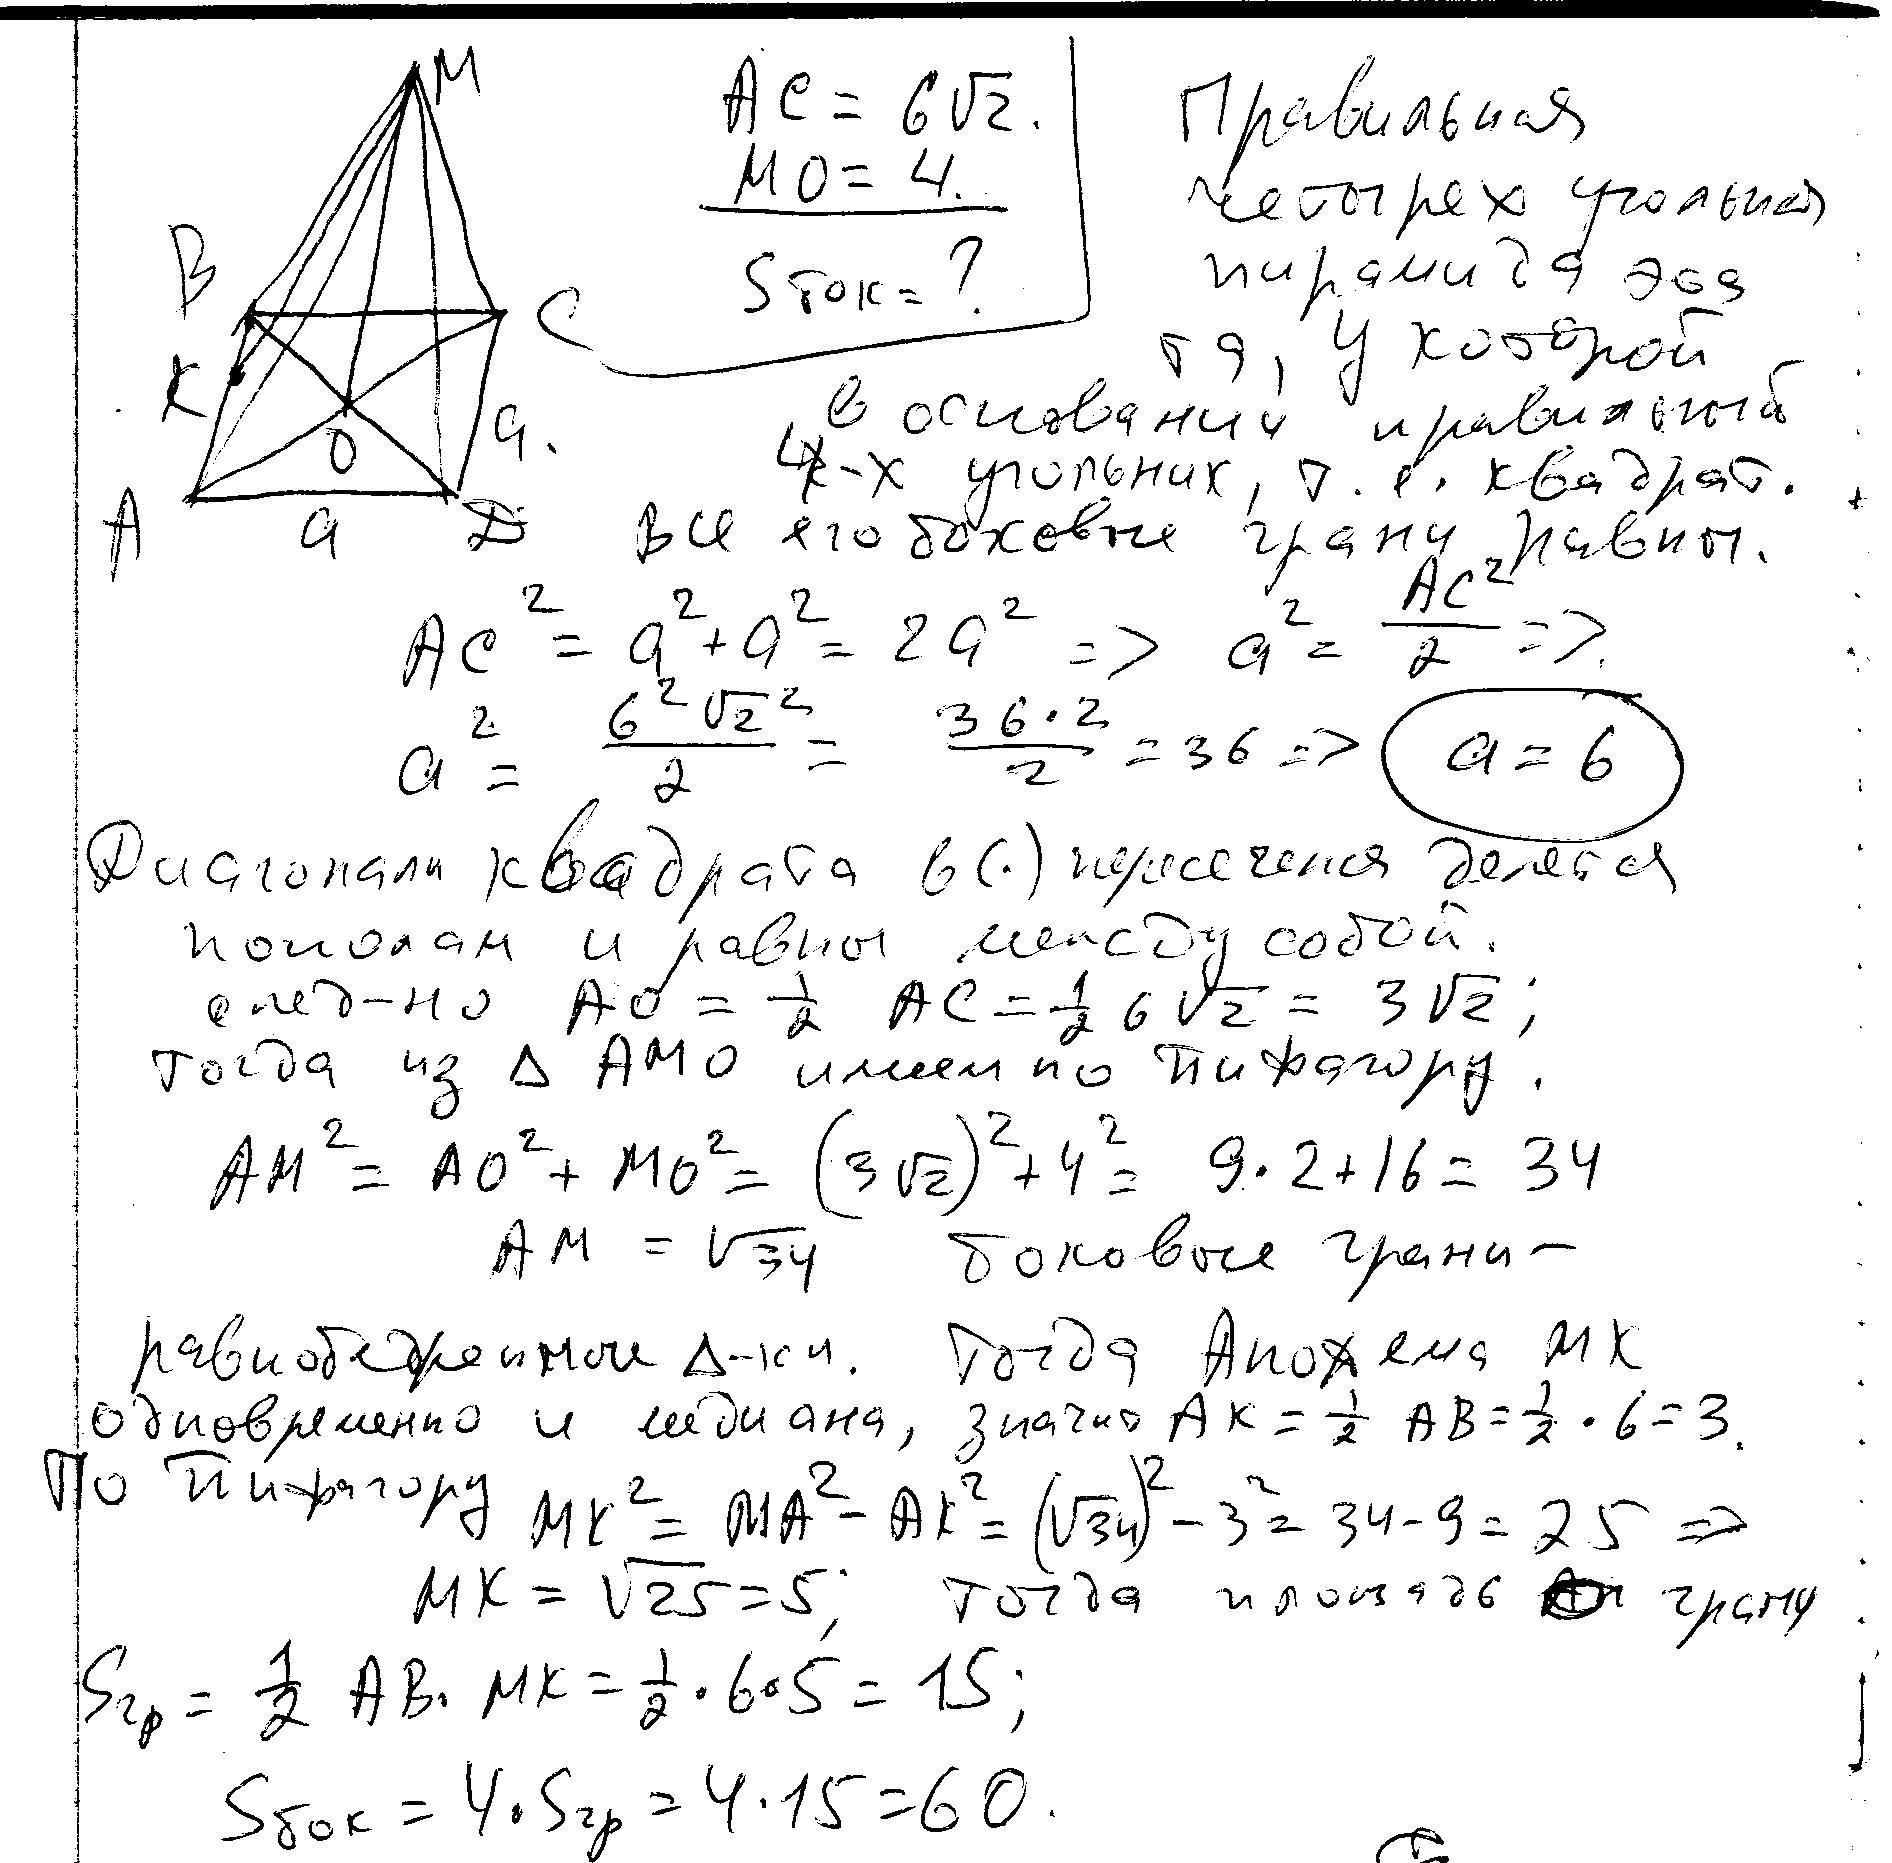 M
B
C
K
O
a.
A
a
D
AC = 6√2.
MO = 4.
Sбок = ?
Правильная
четырех угольная
пирамида это
та, у которой
в основании правильный
4-х угольник, т. е. квадрат.
Все его боковые грани равны.
AC² = a² + a² = 2a² => a² = AC²/2 =>
a² = 6²√2²/2 = 36·2/2 = 36 => a = 6
Диагонали квадрата в (.) пересечения делятся
пополам и равны между собой.
след-но AO = 1/2 AC = 1/2 6√2 = 3√2;
тогда из Δ AMO имеем по Пифагору.
AM² = AO² + MO² = (3√2)² + 4² = 9·2+16 = 34
AM = √34 боковые грани –
равнобедренные Δ-ки. Тогда Апофема MK
одновременно и медиана, значит AK = 1/2 AB = 1/2 · 6 = 3.
По Пифагору MK² = MA² - AK² = (√34)² - 3² = 34 - 9 = 25 =>
MK = √25 = 5; тогда площадь грани
Sгр = 1/2 AB · MK = 1/2 · 6 · 5 = 15;
Sбок = 4 · Sгр = 4 · 15 = 60.